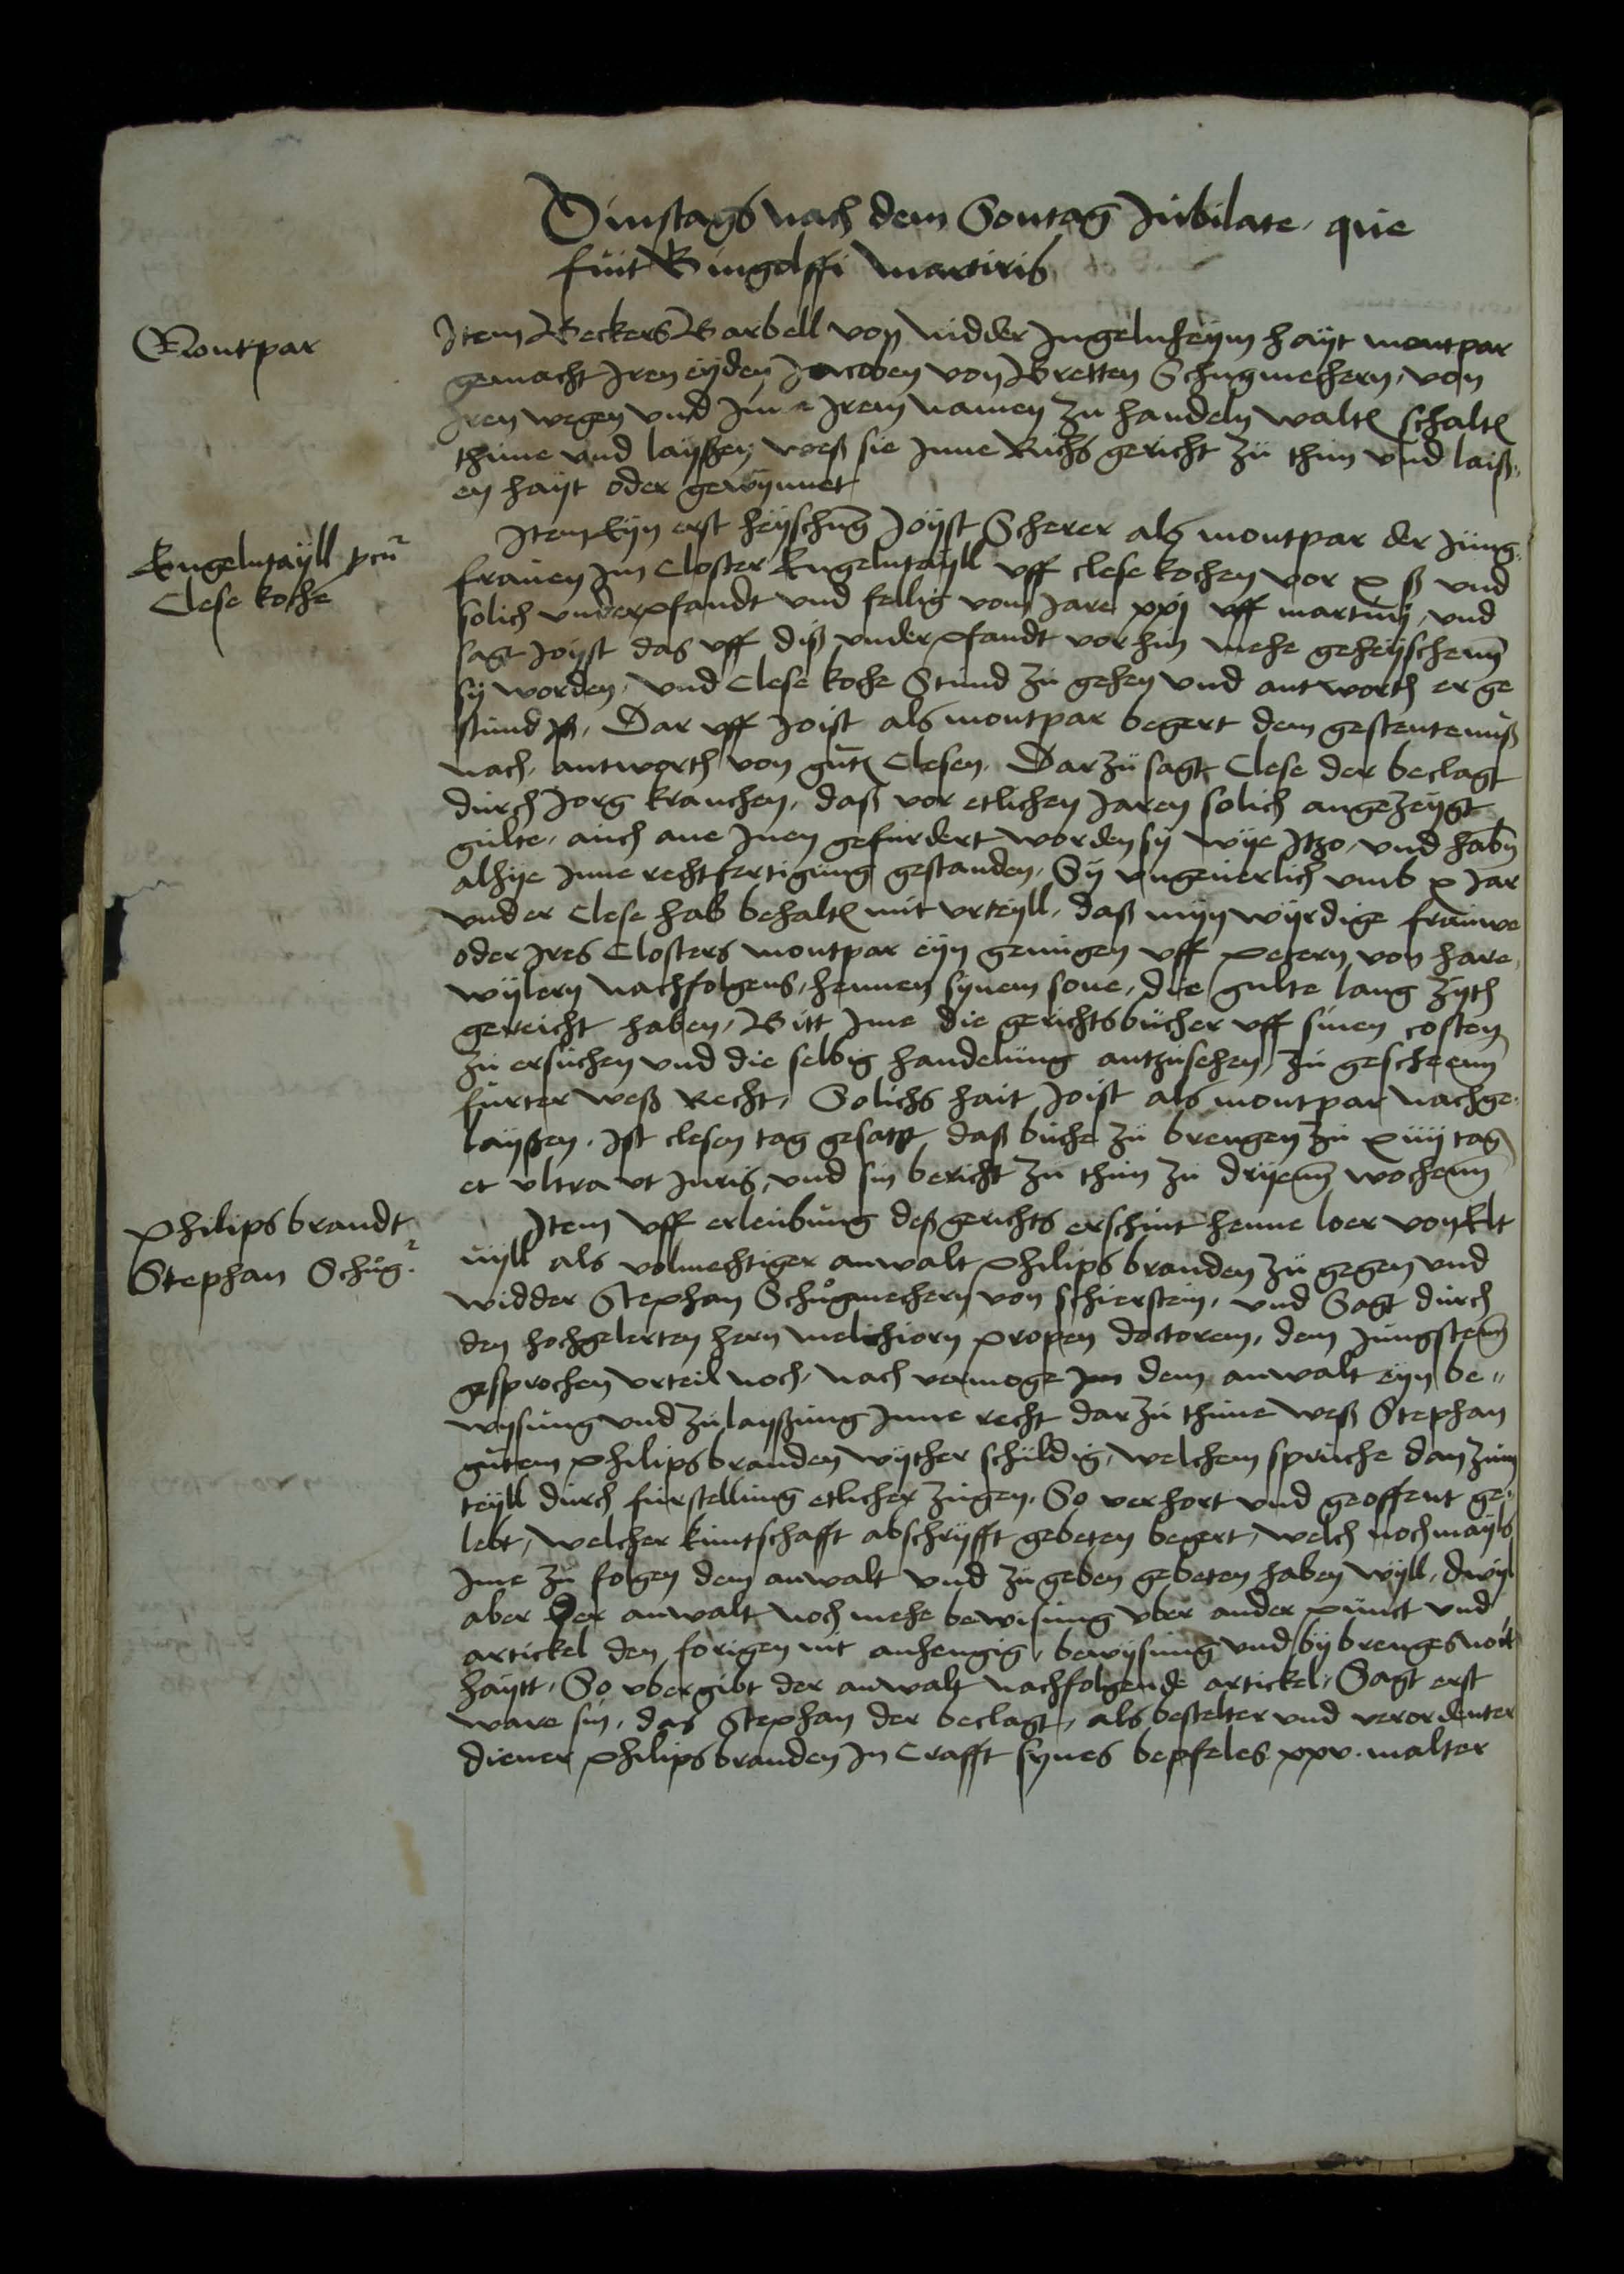 Dinstags nach dem Sontag Jubilate, que
fuit Gingolffi martiris
Montpar
Item Beckers Barbell von Nidder Ingelnheym hayt montpar
gemacht Iren eyden Jacoben von Bretten Schugmechern, von
Iren wegen vnd Inn Irem namen zu handeln walten schalten
thune vnd layßen, weß sie Inne Richs gericht zu thun vnd laiß,
en hayt oder gewynnet
Engelntayll
Clese koche
Item Eyn erst heyschung Joyst Scherer als montpar der Jung,
frauen Im Closter Engelntayll vff clese kochen vor x ß vnd
solich vnderpfandt vnd fellig vom Jare xxj vff martinj, vnd
sagt Joyst das vff diß vnder pfandt vor hin mehe geheyschenn
sy worden, vnd Clese koche Stund zu gehen vnd antworth er ge
stund , Dar vff Joist als montpar begert dem gestenteniß
nach, antworth von guten Clesen, Dar zu sagt Clese der beclagt
durch Jorg krauchen, daß vor etlichen Jaren solich angezeygt
gulte, auch ane Inen gefurdert worden sy wye Itzo, vnd habn
alhye Inne rechtfertigung gestanden, Sy vngeuerlich vmb x Jar
vnd er Clese hab behalten mit vrteyll, daß myn wyrdige frauwe
oder Ires Closters montpar eyn genugen vff Petern von hare,
wylern nachfolgens, hennen synem sone, die gulte lang zyth
gereicht haben, Bitt Ime die gerichtsbucher vff sinen costen
zu ersuchen vnd die selbig handelung antzusehen, zu gescheenn
furter weß Recht, Solichs hait Joist als montpar nachge,
layßen, Ist clesen tag gesatzt daß buche zu brengen zu xiiij tag
et vltra vt Juris, vnd sin bericht zu thun zu dryenn wochenn
Philips brandt
Stephan Schug
Item vff erleubung deß gerichts erschint henne loer von Elt
uyll als volmechtiger anwalt Philips branden zu gegen vnd
widder Stephan Schugmechern von schierstein, vnd Sagt durch
den hochgelerten hern melichiorn Propen doctorem, dem Jungstenn
gesprochen vrteil noch, nach vermoge dem anwalt eyn be,,
wysung vnd zulayßung Inne recht dar zu thune weß Stephan
gutem Philips branden wyther schuldig, welchem spruche dan zum
teyll durch furstellung etlicher zugen, So verhort vnd geoffent ge,
lebt, welcher kuntschafft abschryfft gebeten begert, welch nochmayls
Ime zu folgen dem anwalt vnd zu geben gebeten haben wyll, dwyl
aber der anwalt noch mehe bewisung vber ander punct vnd
artickel den forigen nit anhengig, bewysung vnd by brenges nott
haytt, So vbergibt der anwalt nachfolgende artickel, Sagt erst
ware sin, das Stephan der beclagt, als bestelter vnd verordenter
diener Philips branden In Crafft synes bepfeles xxv. malter